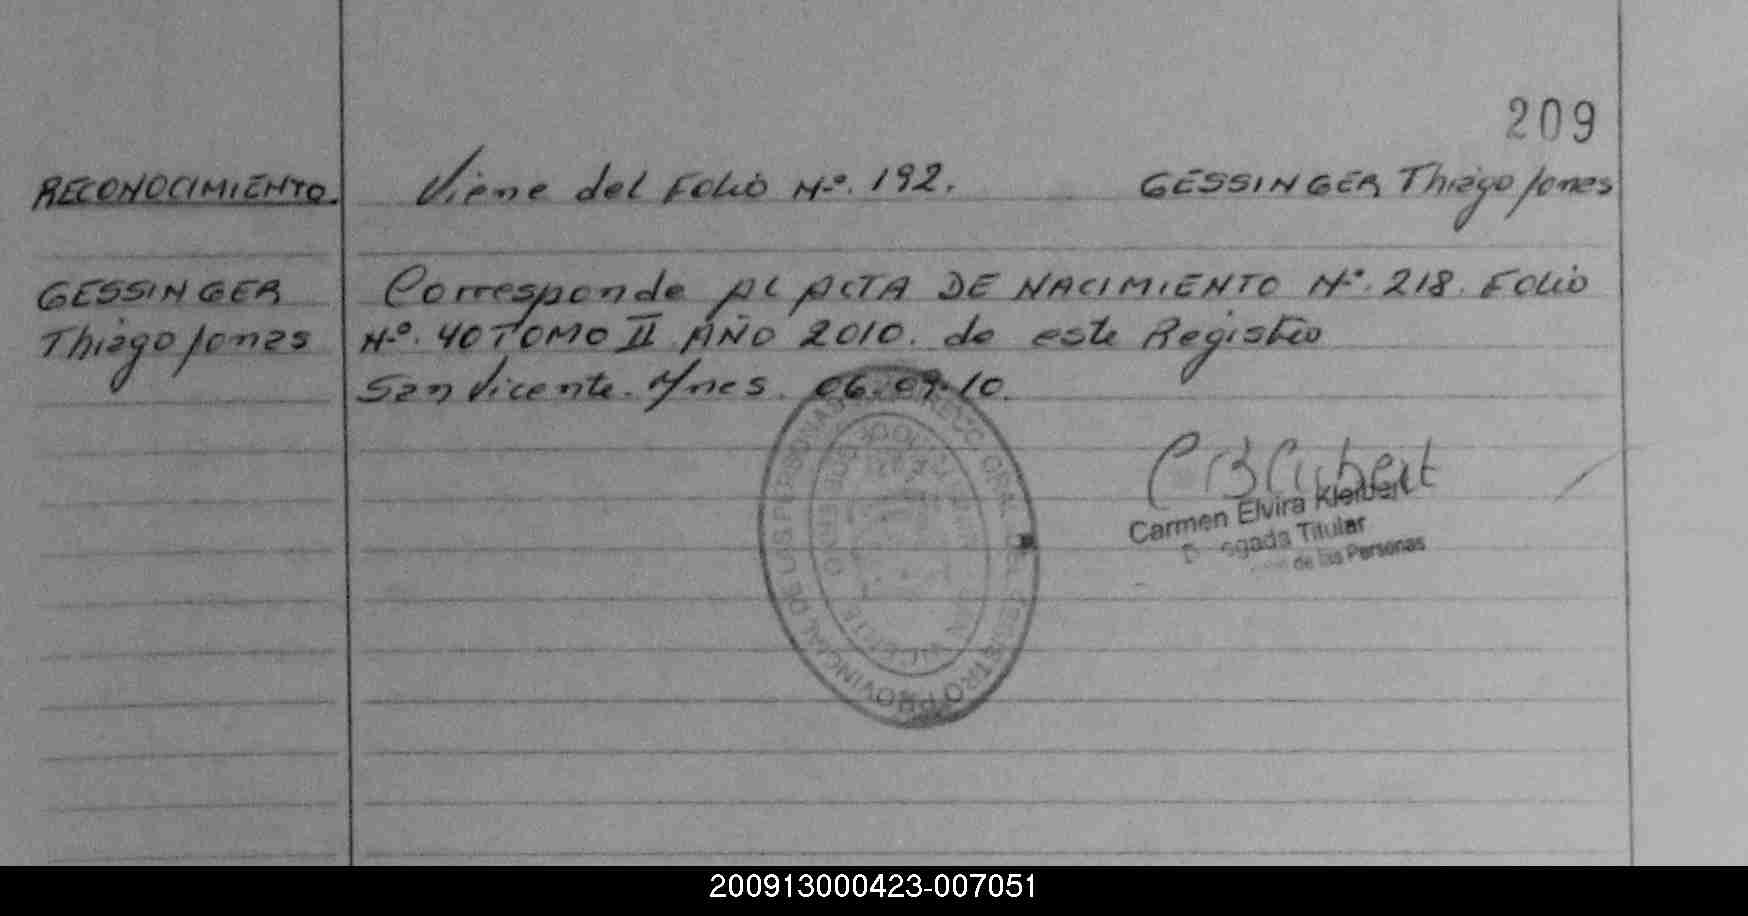 209
RECONOCIMIENTO. Viene del Folio Nº. 192. GESSINGER Thiago Jones
GESSINGER Corresponde AL ACTA DE NACIMIENTO Nº. 218. Folio
Thiago Jones Nº. 40 TOMO II AÑO 2010. de este Registro
San Vicente. Mnes. 06.09.10.
Carmen Elvira Kleibert
Titular
de las Personas
REGISTRO PROVINCIAL DE LAS PERSONAS
SAN VICENTE
200913000423-007051